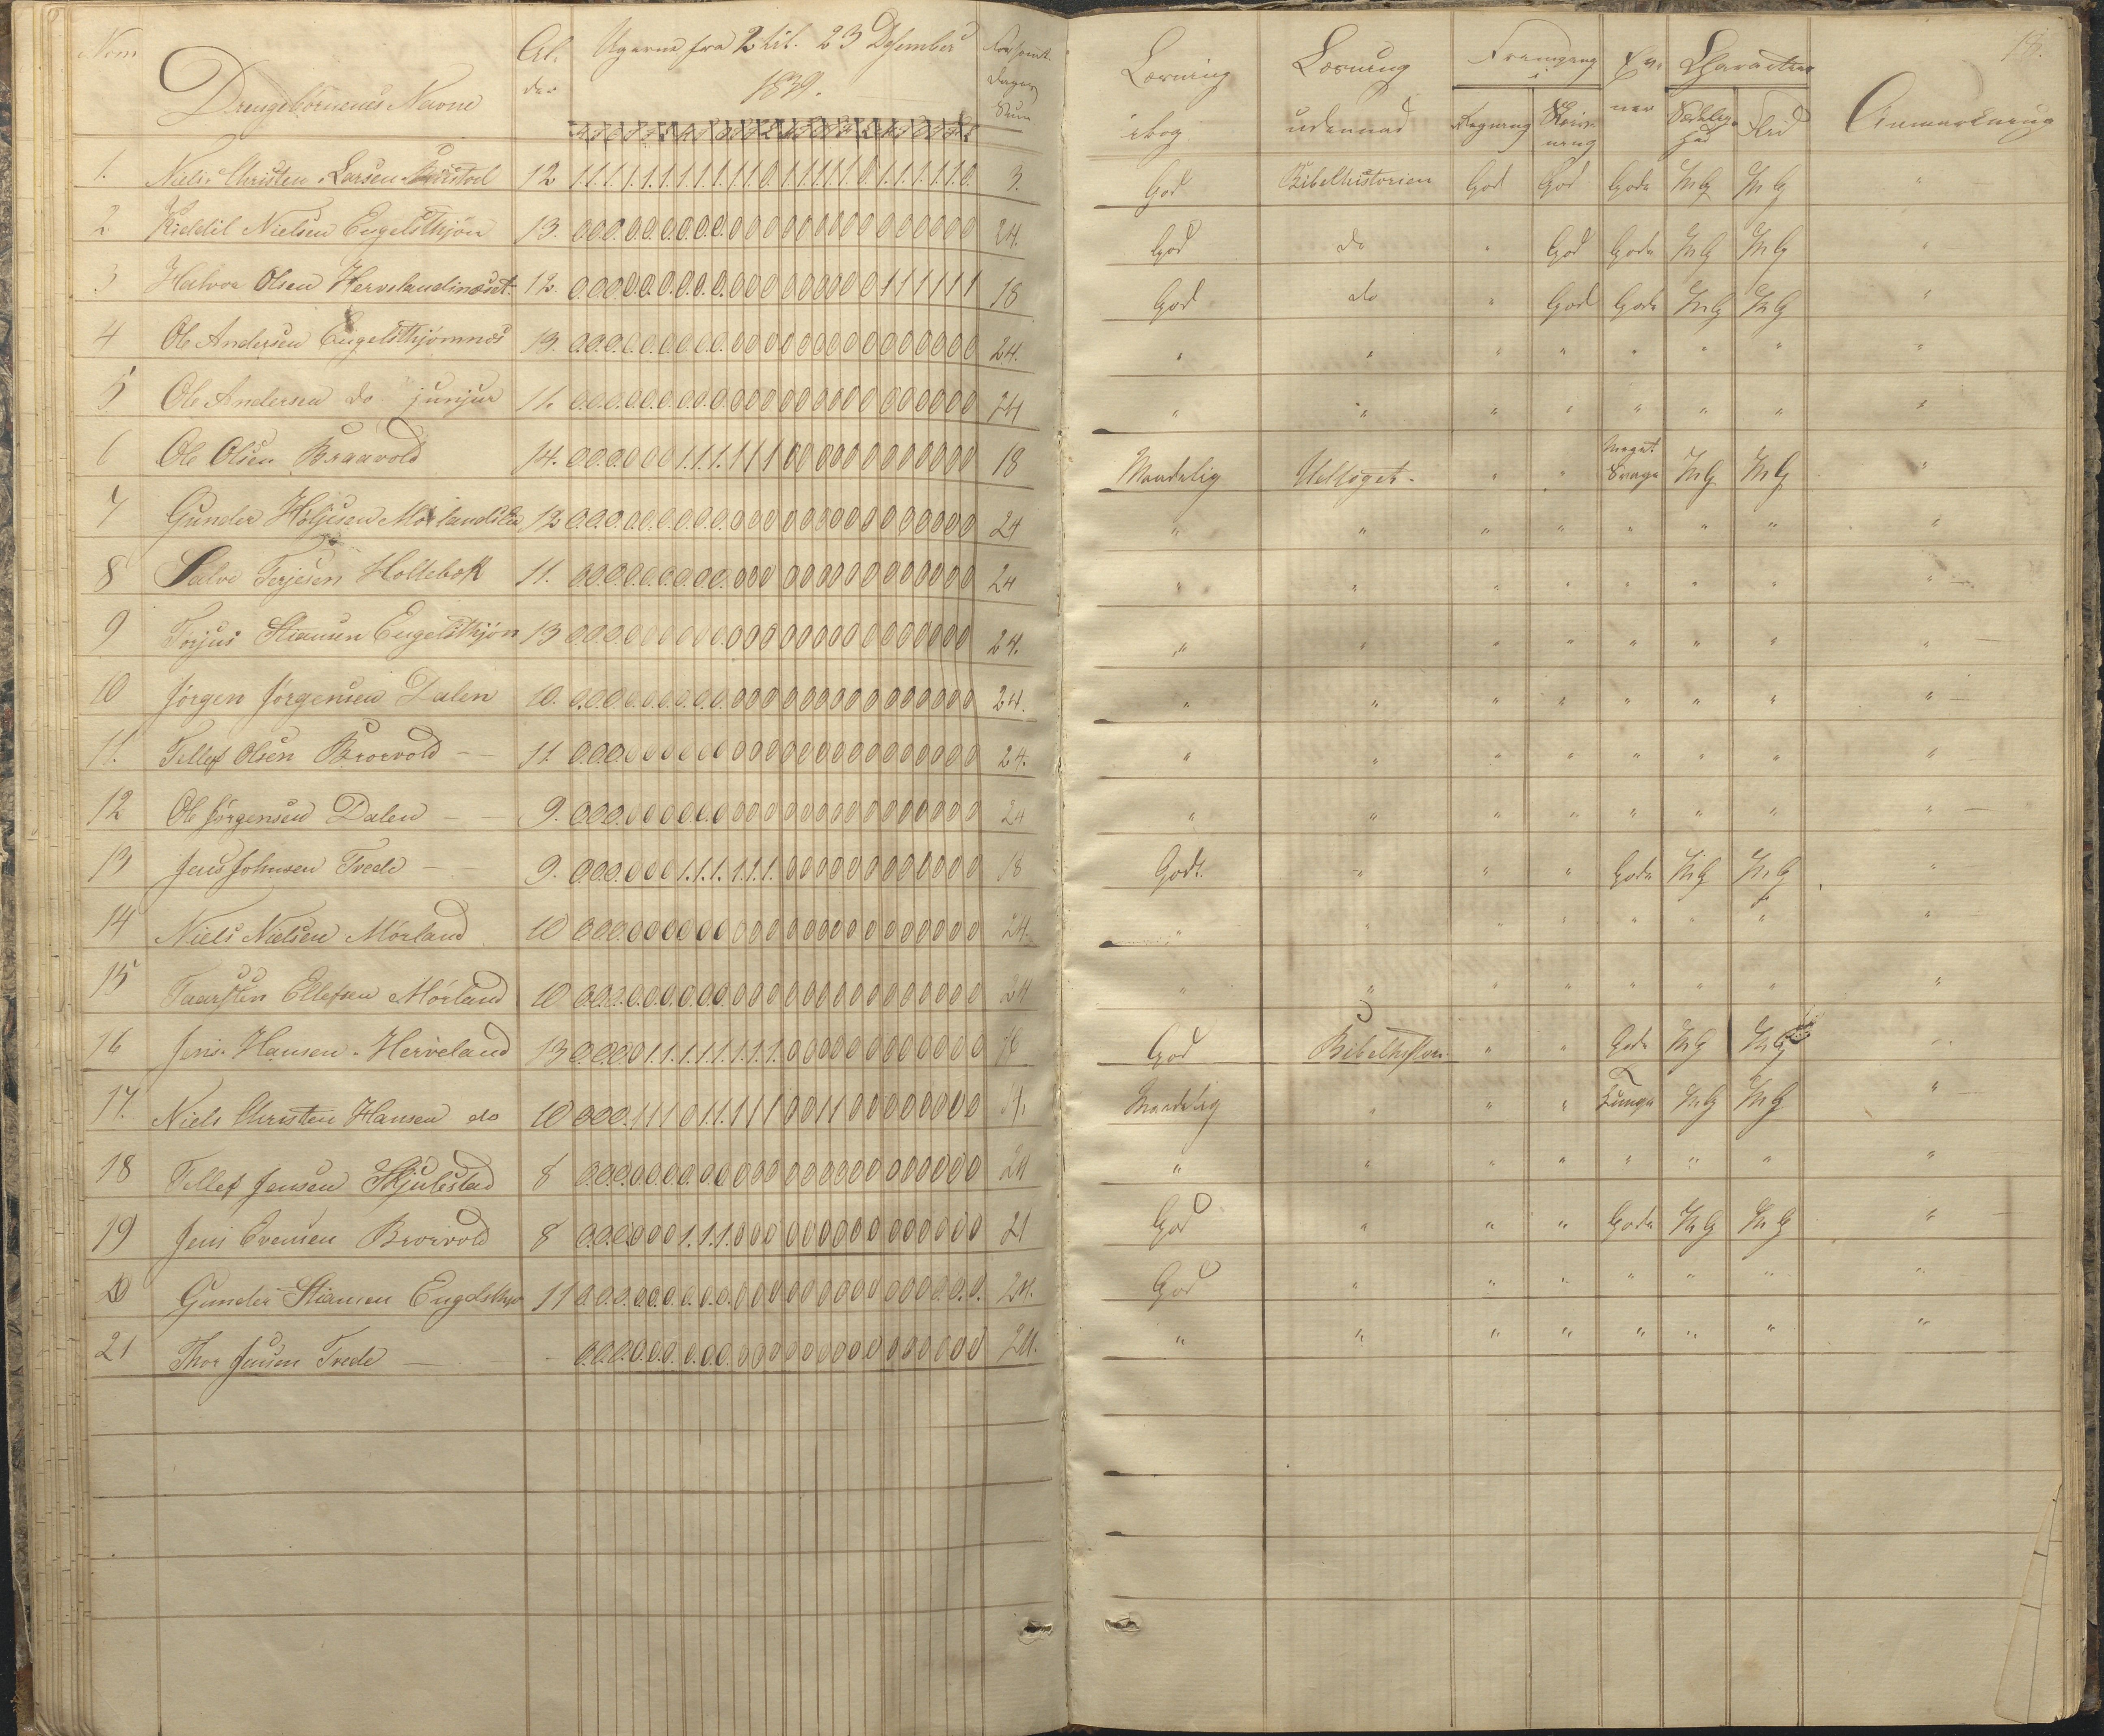 Num
Drengebörnenes Navne
Al-
der
Ugerne fra 2 til 23 Desember
1839.
Forsømt
Dages
Sum
Læsning
i bog
Læsning
udenad
Fremgang
i
Regning
Skriv-
ning
Ev-
ner
Character
Sædelig-
hed
Flid
Anmærkning
13.
1. Niels Christen Larsen 12 1.1.1.1.1.1.1.1.1.1.1.0.1.1.1.1.1.0.1.1.1.1.1.0. 3. God Bibelhistorien God God Gode MG MG "
2 Kiddil Nielsen Engelsthjön 13. 0.0.0.0.0.0.0.0.0.0 0 0 0 0 0 0 0 0 0 0 0 0 0 0 24. God do " God Gode MG MG "
3 Halvor Olsen 12. 0.0.0.0.0.0.0.0.0.0 0 0 0 0 0 0 0 0 1 1 1 1 1 1 18 God do " God Gode MG MG "
4 Ole Andersen Engelsthjönnes 13. 0.0.0.0.0.0.0.0.0.0 0 0 0 0 0 0 0 0 0 0 0 0 0 0 24. " " " " " " " "
5 Ole Andersen do junjur 11. 0.0.0.0.0.0.0.0.0.0 0 0 0 0 0 0 0 0 0 0 0 0 0 0 24 " " " " " " " "
6 Ole Olsen Braavold 14. 0.0.0.0.0.0 1.1.1.1 1 1 0 0 0 0 0 0 0 0 0 0 0 0 18 Maadelig Udeloget. " " Meget Svage MG MG "
7 Gunder Holjesen 12 0.0.0.0.0.0.0.0.0.0 0 0 0 0 0 0 0 0 0 0 0 0 0 0 24 " " " " " " " "
8 Salve Terjesen Hollebok 11. 0.0.0.0.0.0.0.0.0.0 0 0 0 0 0 0 0 0 0 0 0 0 0 0 24 " " " " " " " "
9 Torjus Stiansen Engelsthjön 13 0.0.0.0 0 0 0 0 0 0 0 0 0 0 0 0 0 0 0 0 0 0 0 0 24. " " " " " " " "
10 Jörgen Jörgensen Dalen 10. 0.0.0.0.0.0.0.0.0.0 0 0 0 0 0 0 0 0 0 0 0 0 0 0 24. " " " " " " " "
11. Tellef Olsen Broevold 11 0.0.0.0 0 0 0 0 0 0 0 0 0 0 0 0 0 0 0 0 0 0 0 0 24. " " " " " " " "
12 Ole Jörgensen Dalen 9. 0.0.0.0 0 0 0 0 0 0 0 0 0 0 0 0 0 0 0 0 0 0 0 0 24 " " " " " " " "
13 Jens Johnsen Trede 9. 0.0.0.0 0 0 1.1.1.1.1.1. 0 0 0 0 0 0 0 0 0 0 0 0 18 Godt. " " " Gode MG MG "
14 Niels Nielsen Mörland 10 0.0.0.0 0 0 0 0 0 0 0 0 0 0 0 0 0 0 0 0 0 0 0 0 24. " " " " " " " "
15 Taarsten Ellefsen Mörland 10 0.0.0.0.0.0.0.0.0 0 0 0 0 0 0 0 0 0 0 0 0 0 0 0 24 " " " " " " " "
16 Jens Hansen Herveland 13 0.0.0.0 1.1.1.1.1.1.1.1. 0 0 0 0 0 0 0 0 0 0 0 0 16 God Bibelhistorien " " Gode MG MG "
17. Niels Christen Hansen do 10 0 0 0.1 1 1 0 1.1.1 1 1 0 0 1 1 0 0 0 0 0 0 0 0 Maadelig " " " Tunge MG MG "
18 Tellef Jensen Skjulestad 8 0.0.0.0.0.0.0.0.0 0 0 0 0 0 0 0 0 0 0 0 0 0 0 0 24 " " " " " " " "
19 Jens Evensen Broevold 8 0.0.0.0 0 0 1.1.1.0 0 0 0 0 0 0 0 0 0 0 0 0 0 0 21 God " " " Gode MG MG "
20 Gunder Stiansen Engelsthjø 11 0.0.0.0.0.0.0.0.0.0 0 0 0 0 0 0 0 0 0 0 0 0.0.0. 24. God " " " " " " "
21 Thor Jensen Trede 0.0.0.0.0.0.0.0.0.0 0 0 0 0 0 0 0 0 0 0 0 0 0 0 24. " " " " " " " "